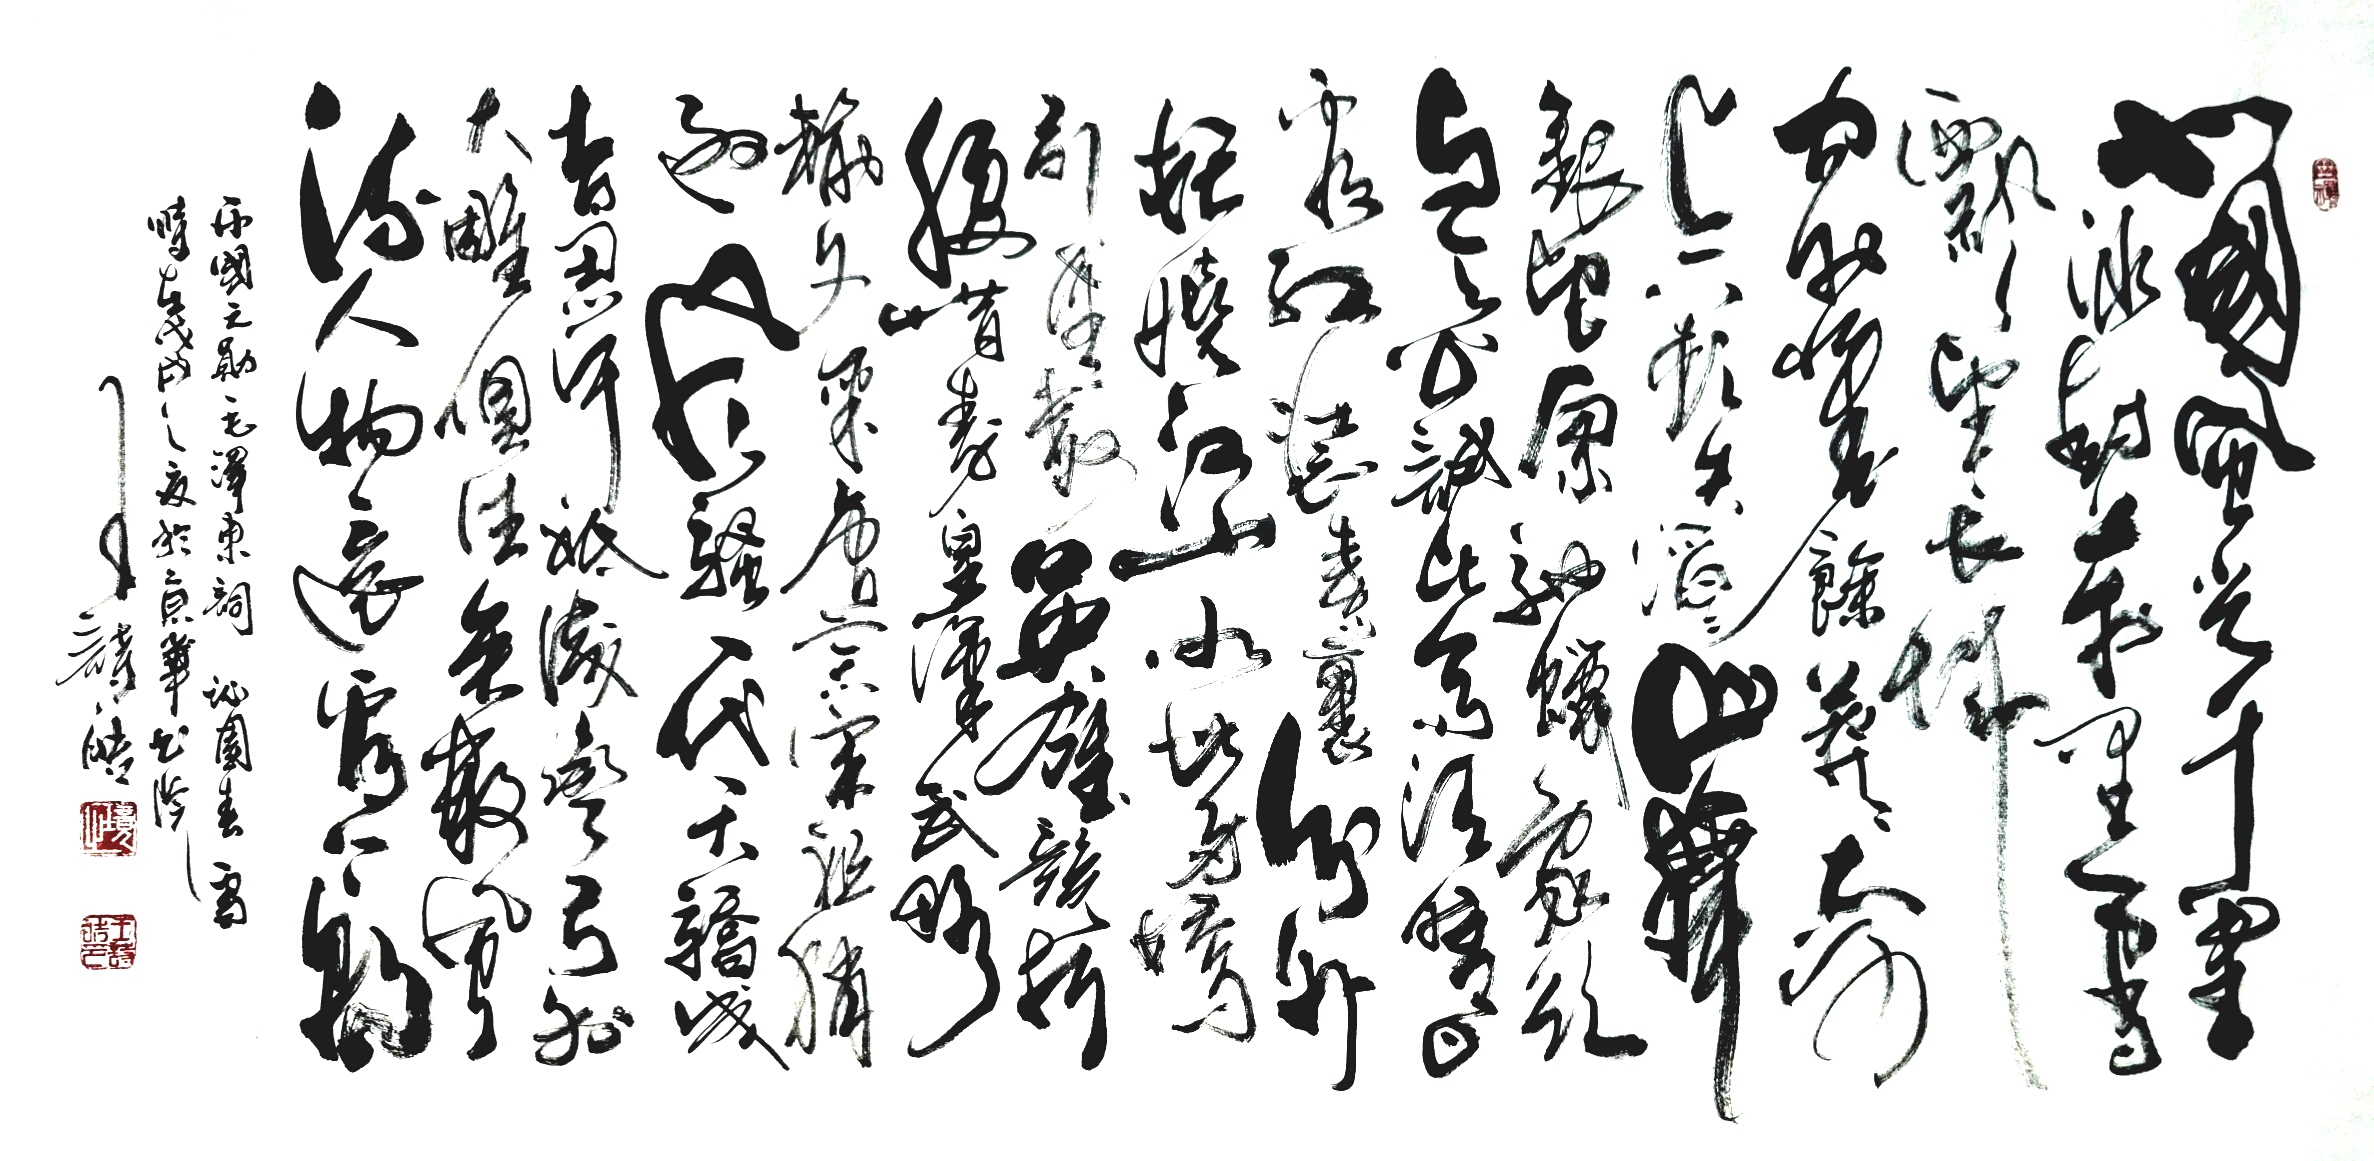 北國風光千里
冰封萬里雪
飄望長城
內外惟餘莽莽大河
上下頓失滔滔山舞
銀蛇原馳蠟象欲
與天公試比高須晴日
看紅裝素裹分外
妖嬈江山如此多嬌
引無數英雄競折
腰惜秦皇漢武略
輸文采唐宗宋祖稍
遜風騷一代天驕成
吉思汗祗識彎弓射
大雕俱往矣數風
流人物還看今朝
國元勛毛澤東詞 沁園春 雪
時在戊戌之夏於京華